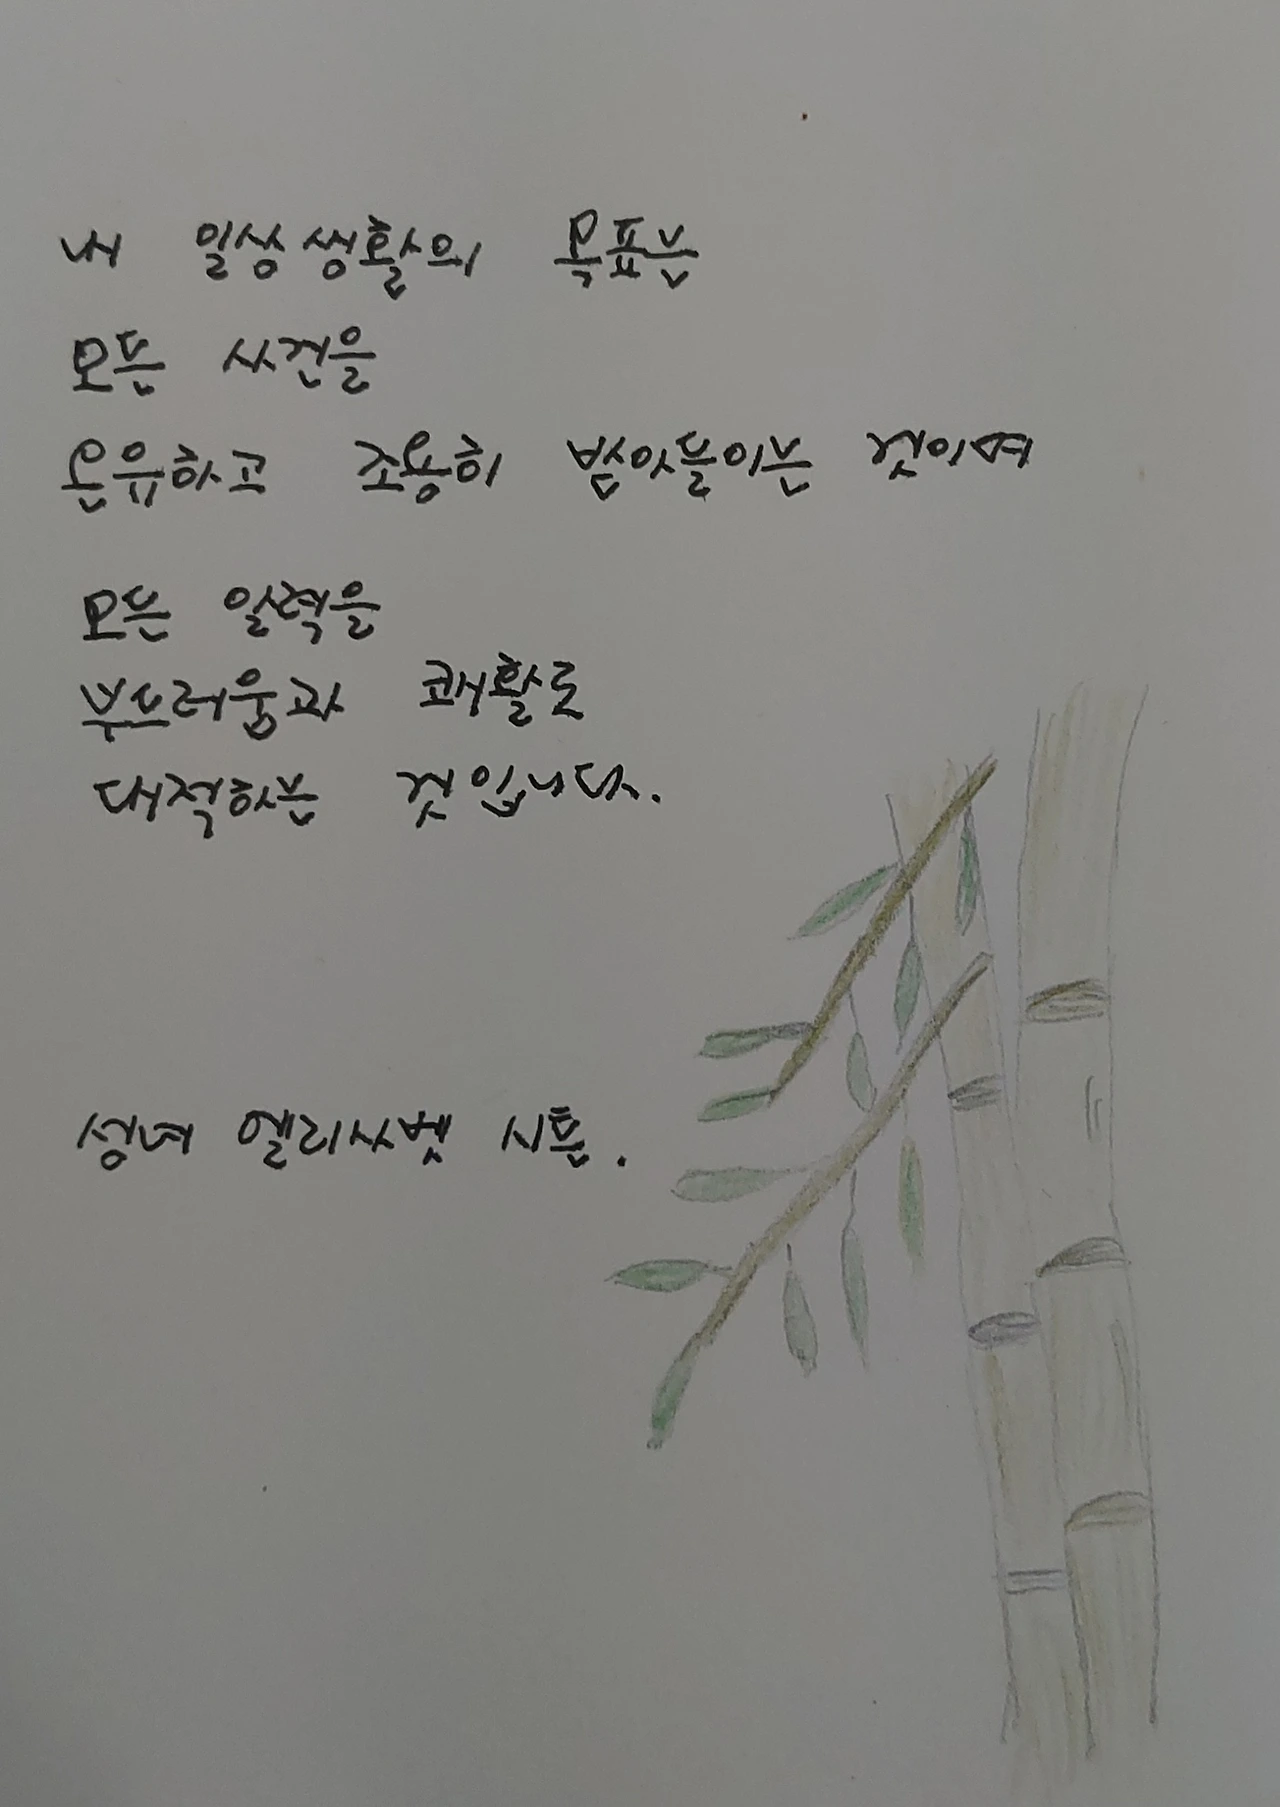 내 일상생활의 목표는
모든 사건을
온유하고 조용히 받아들이는 것이며
모든 일력을
부드러움과 쾌활로
대적하는 것입니다.
성녀 엘리사벳 시튼.